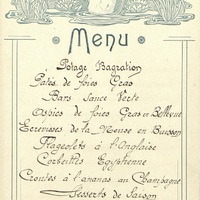 Menu
Potage Bagration
Patés de foies Gras
Bars Sauce Verte
Aspics de foies Gras en Bellevue
Ecrevisses de la Meuse en Buisson
Flageolets à l'Anglaise
Corbeilles Egyptienne
Croutes à l'ananas au Champagne
Desserts de Saison